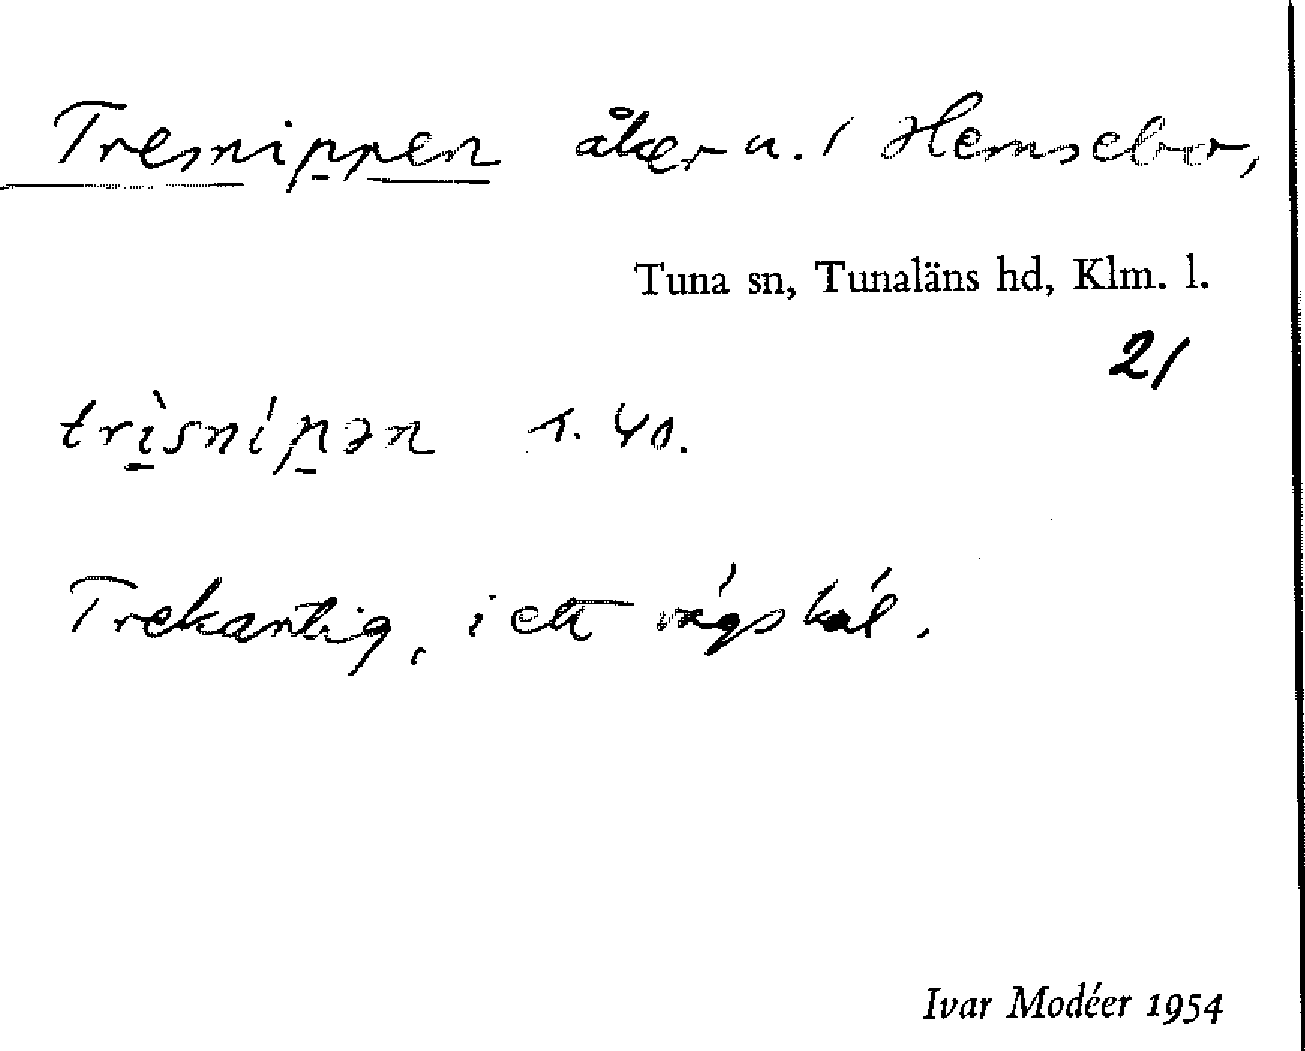 Tresnippen åker u. / Hemsebo,
Tuna sn, Tunaläns hd, Klm. l.
21
trìsnípən s. 40.
Trekantig, i ett vägskäl.
Ivar Modéer 1954